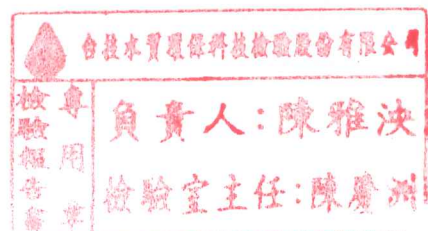 台技水質環保科技檢驗股份有限公司
檢驗報告書
專用章
負責人：陳雅泱
檢驗室主任：陳